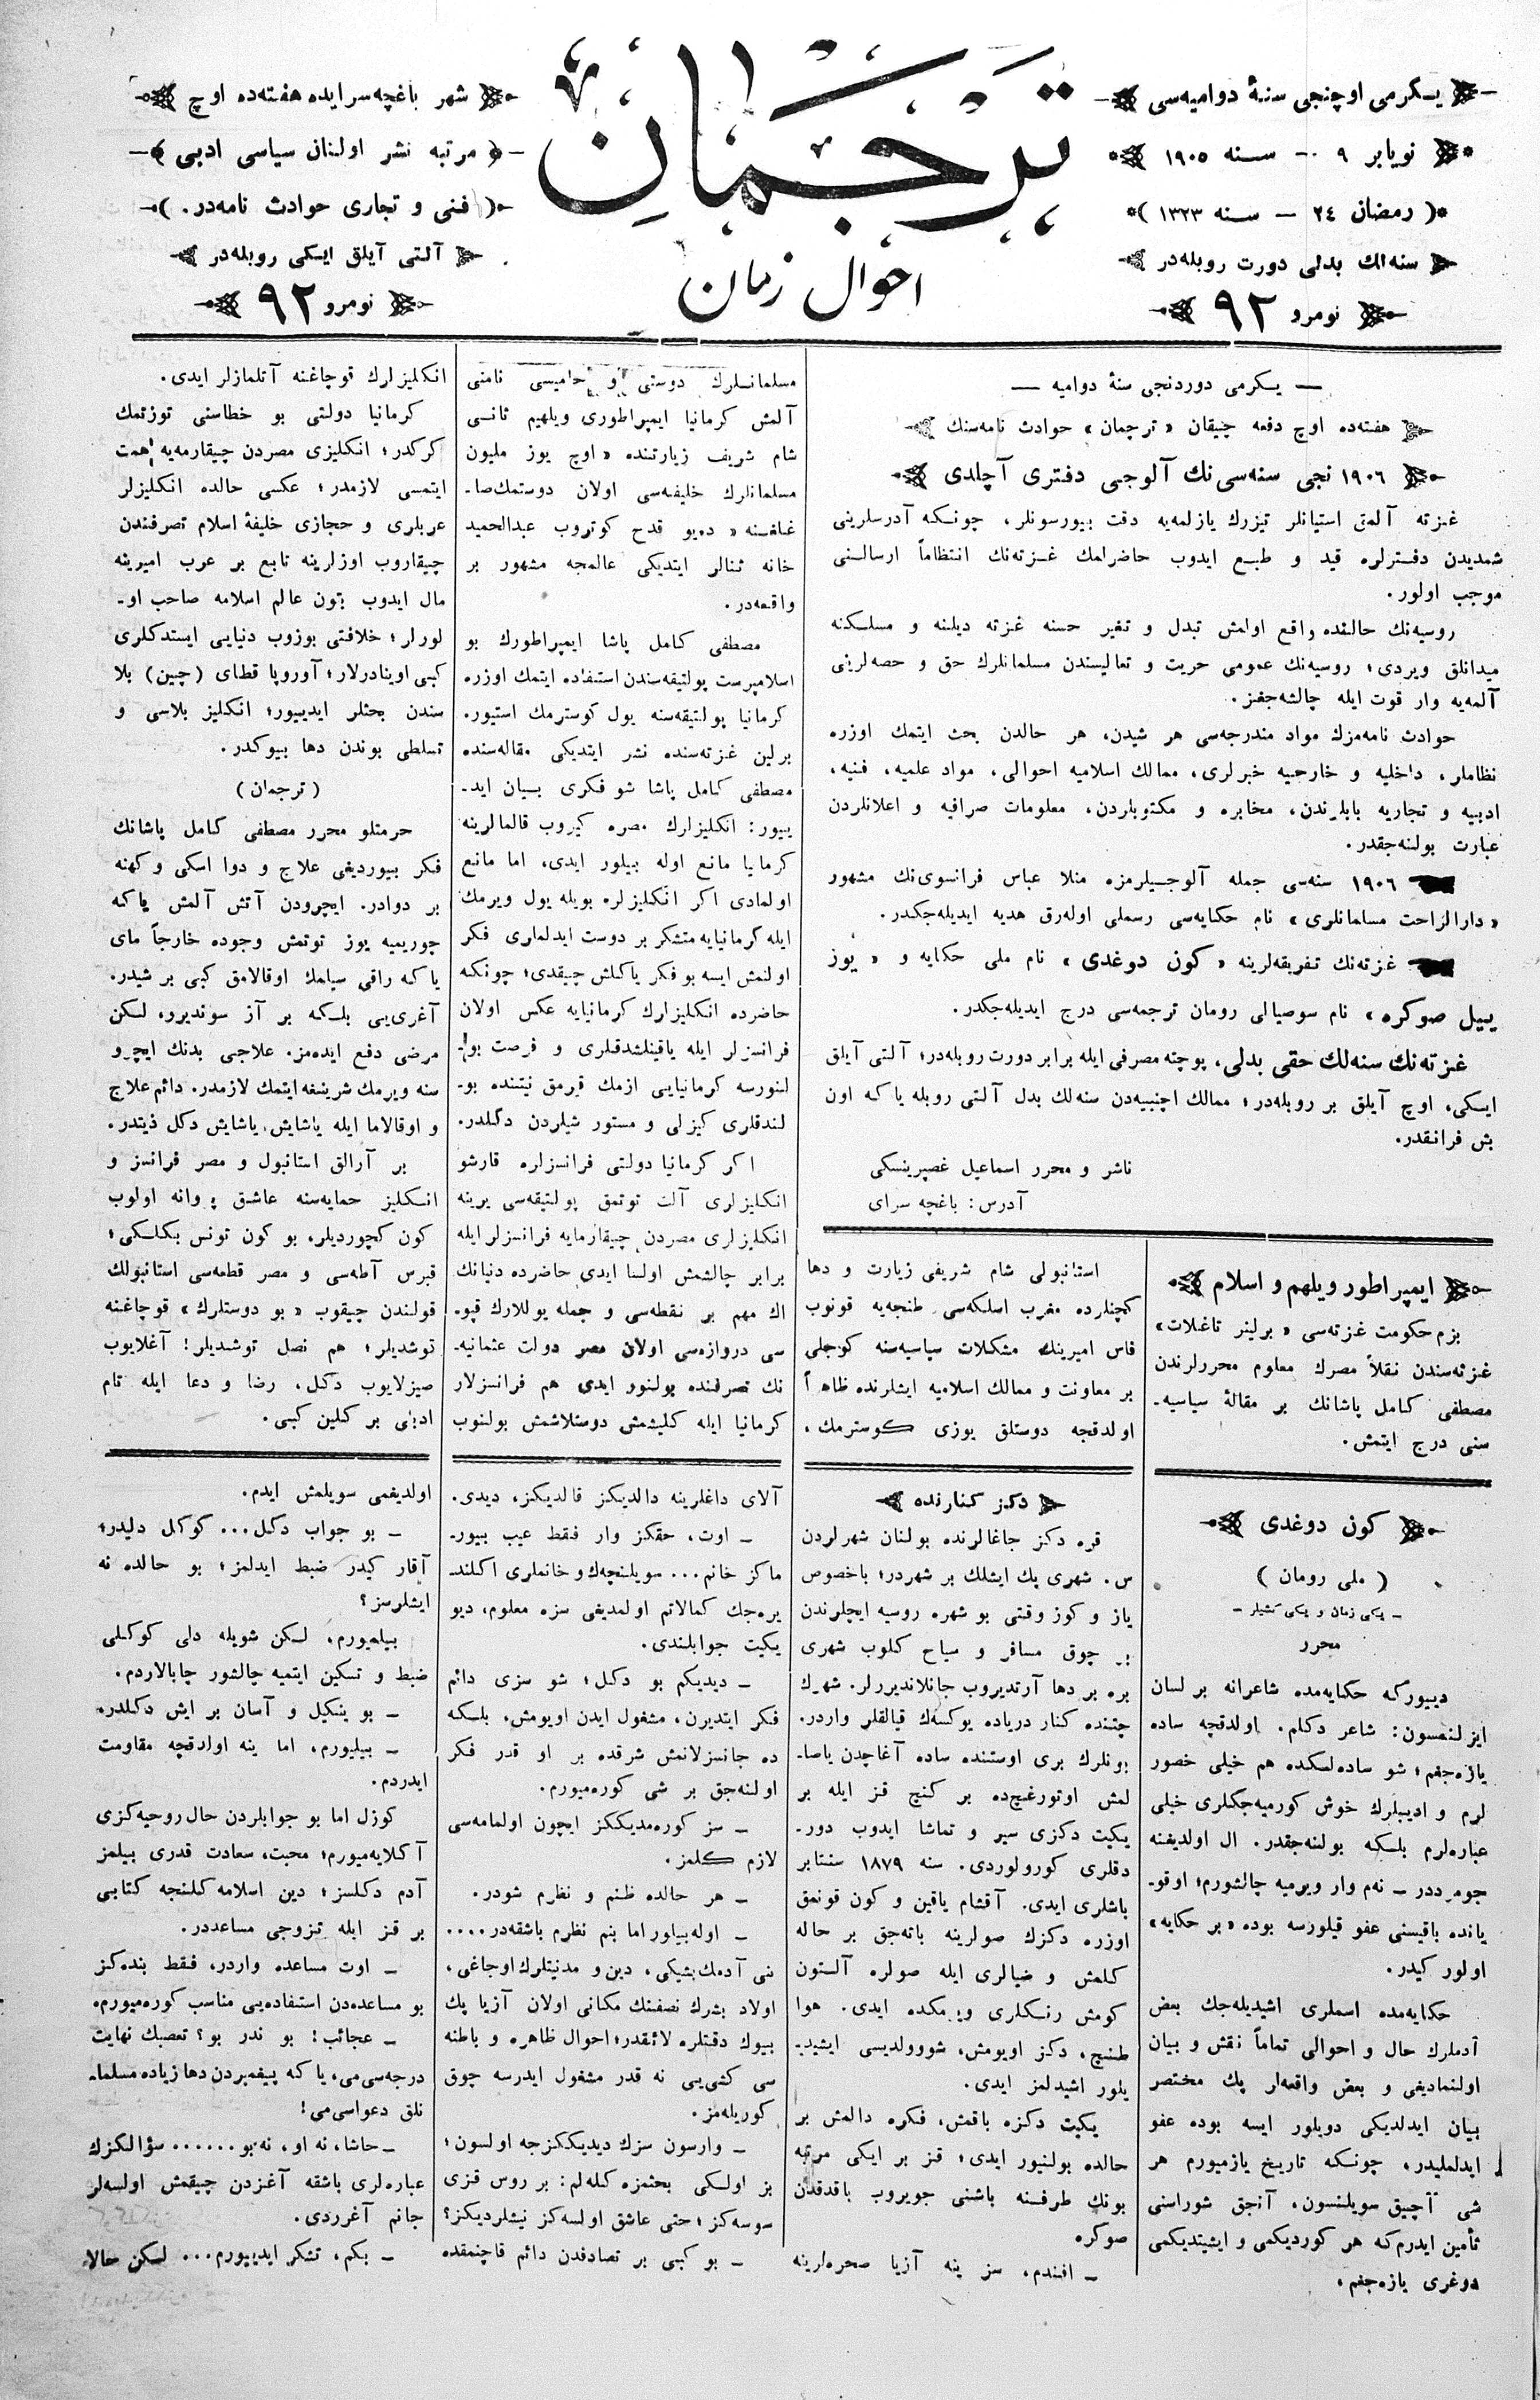 یكرمی اوچنجی سنهٔ دوامیه‌سی
نویابر ٩ — سنه ١٩٠٥
( رمضان ٢٤ — سنه ١٣٢٣ )
سنه‌لك بدلی دورت روبله‌در
نومرو ٩٢
ترجمان
احوال زمان
شهر باغچه‌سرایده هفته‌ده اوچ
مرتبه نشر اولنان سیاسی ادبی
( فنی و تجاری حوادث نامه‌در. )
آلتی آیلق ایكی روبله‌در
نومرو ٩٢
— یكرمی دوردنجی سنهٔ دوامیه —
هفته‌ده اوچ دفعه چیقان «ترجمان» حوادث نامه‌سنك
١٩٠٦ نجی سنه‌سی‌نك آلوجی دفتری آچلدی
غزته آلمق استیانلر تیزرك یازلمه‌یه دقت بیورسونلر، چونكه آدرسلرینی
شمدیدن دفترلره قید و طبع ایدوب حاضرلمك غزته‌نك انتظاماً ارسالنی
موجب اولور.
روسیه‌نك حالنده واقع اولمش تبدل و تغیر حسنه غزته دیلنه و مسلكنه
میدانلق ویردی؛ روسیه‌نك عمومی حریت و تعالیسندن مسلمانلرك حق و حصه‌لرینی
آلمه‌یه وار قوت ایله چالشه‌جغز.
حوادث نامه‌مزك مواد مندرجه‌سی هر شیدن، هر حالدن بحث ایتمك اوزره
نظاملر، داخلیه و خارجیه خبرلری، ممالك اسلامیه احوالی، مواد علمیه، فنیه،
ادبیه و تجاریه بابلرندن، مخابره و مكتوبلردن، معلومات صرافیه و اعلانلردن
عبارت بولنه‌جقدر.
١٩٠٦ سنه‌سی جمله آلوجیلرمزه منلا عباس فرانسوی‌نك مشهور
«دارالراحت مسلمانلری» نام حكایه‌سی رسملی اوله‌رق هدیه ایدیله‌جكدر.
غزته‌نك تفریقه‌لرینه «كون دوغدی» نام ملی حكایه و «یوز
ییل صوكره» نام سوصیالی رومان ترجمه‌سی درج ایدیله‌جكدر.
غزته‌نك سنه‌لك حقی بدلی، پوچته مصرفی ایله برابر دورت روبله‌در؛ آلتی آیلق
ایكی، اوچ آیلق بر روبله‌در؛ ممالك اجنبیه‌دن سنه‌لك بدل آلتی روبله یاكه اون
بش فرانقدر.
ناشر و محرر اسماعیل غصپرینسكی
آدرس: باغچه سرای
ایمپراطور ویلهم و اسلام
بزم حكومت غزته‌سی «برلینر تاغلات»
غزته‌سندن نقلاً مصرك معلوم محررلرندن
مصطفی كامل پاشانك بر مقالهٔ سیاسیه-
سنی درج ایتمش.
استانبولی شام شریفی زیارت و دها
كچنلرده مغرب اسلكه‌سی طنجه‌یه قونوب
فاس امیرینك مشكلات سیاسیه‌سنه كوجلی
بر معاونت و ممالك اسلامیه ایشلرنده ظاهراً
اولدقجه دوستلق یوزی كوسترمك،
مسلمانلرك دوستی و حامیسی نامنی
آلمش كرمانیا ایمپراطوری ویلهیم ثانی
شام شریف زیارتنده «اوچ یوز ملیون
مسلمانلرك خلیفه‌سی اولان دوستمك صا-
غلغنه» ده‌یو قدح كوتروب عبدالحمید
خانه ثنالر ایتدیكی عالمجه مشهور بر
واقعه‌در.
مصطفی كامل پاشا ایمپراطورك بو
اسلامپرست پولتیقه‌سندن استفاده ایتمك اوزره
كرمانیا پولتیقه‌سنه یول كوسترمك استیور.
برلین غزته‌سنده نشر ایتدیكی مقاله‌سنده
مصطفی كامل پاشا شو فكری بیان اید-
ییور: انكلیزلرك مصره كیروب قالمالرینه
كرمانیا مانع اوله بیلور ایدی، اما مانع
اولمادی اكر انكلیزلره بویله یول ویرمك
ایله كرمانیایه متشكر بر دوست ایدلماری فكر
اولنمش ایسه بو فكر یاكلش چیقدی؛ چونكه
حاضرده انكلیزلرك كرمانیایه عكس اولان
فرانسزلر ایله یاقینلشدقلری و فرصت بو-
لنورسه كرمانیایی ازمك قیرمق نیتنده بو-
لندقلری كیزلی و مستور شیلردن دگلدر.
اكر كرمانیا دولتی فرانسزلره قارشو
انكلیزلری آلت توتمق پولتیقه‌سی یرینه
انكلیزلری مصردن چیقارمایه فرانسزلر ایله
برابر چالشمش اولسا ایدی حاضرده دنیانك
اك مهم بر نقطه‌سی و جمله یوللارك قپو-
سی دروازه‌سی اولان مصر دولت عثمانیه-
نك تصرفنده بولنور ایدی هم فرانسزلار
كرمانیا ایله كلیشمش دوستلاشمش بولنوب
انكلیزلرك قوچاغنه آتلمازلر ایدی.
كرمانیا دولتی بو خطاسنی توزتمك
كركدر؛ انكلیزی مصردن چیقارمه‌یه همت
ایتمسی لازمدر؛ عكسی حالده انكلیزلر
عربلری و حجازی خلیفهٔ اسلام تصرفندن
چیقاروب اوزلرینه تابع بر عرب امیرینه
مال ایدوب بتون عالم اسلامه صاحب او-
لورلر؛ خلافتی بوزوب دنیایی ایستدكلری
كبی اوینادرلار؛ آوروپا قطای (چین) بلا
سندن بحثلر ایدییور؛ انكلیز بلاسی و
تسلطی بوندن دها بیوكدر.
(ترجمان)
حرمتلو محرر مصطفی كامل پاشانك
فكر بیوردیغی علاج و دوا اسكی و كهنه
بر دوادر. ایچرودن آتش آلمش یاكه
چوریمیه یوز توتمش وجوده خارجاً مای
یاكه راقی سیلمك اوقالامق كبی بر شیدر.
آغری‌یی بلكه بر آز سوندیرر، لكن
مرضی دفع ایده‌مز. علاجی بدنك ایچرو
سنه ویرمك شرینغه ایتمك لازمدر. دائم علاج
و اوقالاما ایله یاشایش، یاشایش دكل ذیتدر.
بر آرالق استانبول و مصر فرانسز و
انكلیز حمایه‌سنه عاشق پروانه اولوب
كون كچوردیلر، بو كون تونس بكلكی؛
قبرس آطه‌سی و مصر قطعه‌سی استانبولك
قولندن چیقوب «بو دوستلرك» قوچاغنه
توشدیلر؛ هم نصل توشدیلر! آغلایوب
صیزلایوب دكل، رضا و دعا ایله تام
ادبلی بر كلین كبی.
كون دوغدی
( ملی رومان )
- یكی زمان و یكی كشیلر -
محرر
دییوركه حكایه‌مده شاعرانه بر لسان
ایزلنمسون: شاعر دكلم. اولدقچه ساده
یازه‌جغم؛ شو ساده‌لكده هم خیلی خصور
لرم و ادیبلرك خوش كورمیه‌جكلری خیلی
عباره‌لرم بلكه بولنه‌جقدر. ال اولدیغنه
جومرددر — نه‌م وار ویرمیه چالشورم؛ اوقو-
یانده باقیسنی عفو قیلورسه بوده «بر حكایه»
اولور كیدر.
حكایه‌مده اسملری اشیدیله‌جك بعض
آدملرك حال و احوالی تماماً نقش و بیان
اولنمادیغی و بعض واقعه‌لر پك مختصر
بیان ایدلدیكی دویلور ایسه بوده عفو
ایدلملیدر، چونكه تاریخ یازمیورم هر
شی آچیق سویلنسون، آنجق شوراسنی
تأمین ایدرم‌كه هر كوردیكمی و ایشیتدیكمی
دوغری یازه‌جغم.
دكز كنارنده
قره دكز جاغالرنده بولنان شهرلردن
س. شهری پك ایشلك بر شهردر؛ باخصوص
یاز و كوز وقتی بو شهره روسیه ایچلرندن
بر چوق مسافر و سیاح كلوب شهری
بره بر دها آرتدیروب جانلاندیررلر. شهرك
چتنده كنار دریاده یوكسك قیالقلر واردر.
بونلرك بری اوستنده ساده آغاچدن یاصا-
لمش اوتورغیچ‌ده بر كنج قز ایله بر
یكیت دكزی سیر و تماشا ایدوب دور-
دقلری كورولوردی. سنه ١٨٧٩ سنتابر
باشلری ایدی. آقشام یاقین و كون قونمق
اوزره دكزك صولرینه باته‌جق بر حاله
كلمش و ضیالری ایله صولره آلتون
كومش رنكلری ویرمكده ایدی. هوا
طنچ، دكز اویومش، شووولدیسی ایشید-
یلور اشیدلمز ایدی.
یكیت دكزه باقمش، فكره دالمش بر
حالده بولنیور ایدی؛ قز بر ایكی مرتبه
بونك طرفنه باشنی جویروب باقدقدن
صوكره
— افندم، سز ینه آزیا صحره‌لرینه
آلای داغلرینه دالدیكز قالدیكز، دیدی.
— اوت، حقكز وار فقط عیب بیور-
ماكز خانم... سویلنچه‌ك و خانملری اكلند-
یره‌جك كمالاتم اولمدیغی سزه معلوم، دیو
یكیت جوابلندی.
— دیدیكم بو دكل؛ شو سزی دائم
فكر ایتدیرن، مشغول ایدن اویومش، بلكه
ده جانسزلانمش شرقده بر او قدر فكر
اولنه‌جق بر شی كوره‌میورم.
— سز كوره‌مدیككز ایچون اولمامه‌سی
لازم كلمز.
— هر حالده ظنم و نظرم شودر.
— اوله‌بیلور اما بنم نظرم باشقه‌در....
بنی آدم‌ك بشیكی، دین و مدنیتلرك اوجاغی،
اولاد بشرك نصفنك مكانی اولان آزیا پك
بیوك دقتلره لائقدر؛ احوال ظاهره و باطنه
سی كشی‌یی نه قدر مشغول ایدرسه چوق
كوریله‌مز.
— وارسون سزك دیدیككزجه اولسون؛
بز اولكی بحثمزه كله‌لم: بر روس قزی
سوسه‌كز؛ حتی عاشق اولسه‌كز نیشلردیكز؟
— بو كبی بر تصادفدن دائم قاچنمقده
اولدیغمی سویلمش ایدم.
— بو جواب دكل... كوكل دلیدر؛
آقار كیدر ضبط ایدلمز؛ بو حالده نه
ایشلرسز؟
بیلمیورم، لكن شویله دلی كوكلی
ضبط و تسكین ایتمیه چالشور چابالاردم.
— بو ینكیل و آسان بر ایش دكلدر،
— بیلیورم، اما ینه اولدقچه مقاومت
ایدردم.
كوزل اما بو جوابلردن حال روحیه‌كزی
آكلایه‌میورم؛ محبت، سعادت قدری بیلمز
آدم دكلسز؛ دین اسلامه كلنجه كتابی
بر قز ایله تزوجی مساعددر.
— اوت مساعده واردر، فقط بنده‌كز
بو مساعده‌دن استفاده‌یی مناسب كوره‌میورم.
— عجائب! بو ندر بو؟ تعصبك نهایت
درجه‌سی‌می، یاكه پیغمبردن دها زیاده مسلما-
نلق دعواسی‌می!
— حاشا، نه او، نه بو...... سؤالكزك
عباره‌لری باشقه آغزدن چیقمش اولسه‌لر
جانم آغرردی.
— بكم، تشكر ایدییورم... لسكن حالا